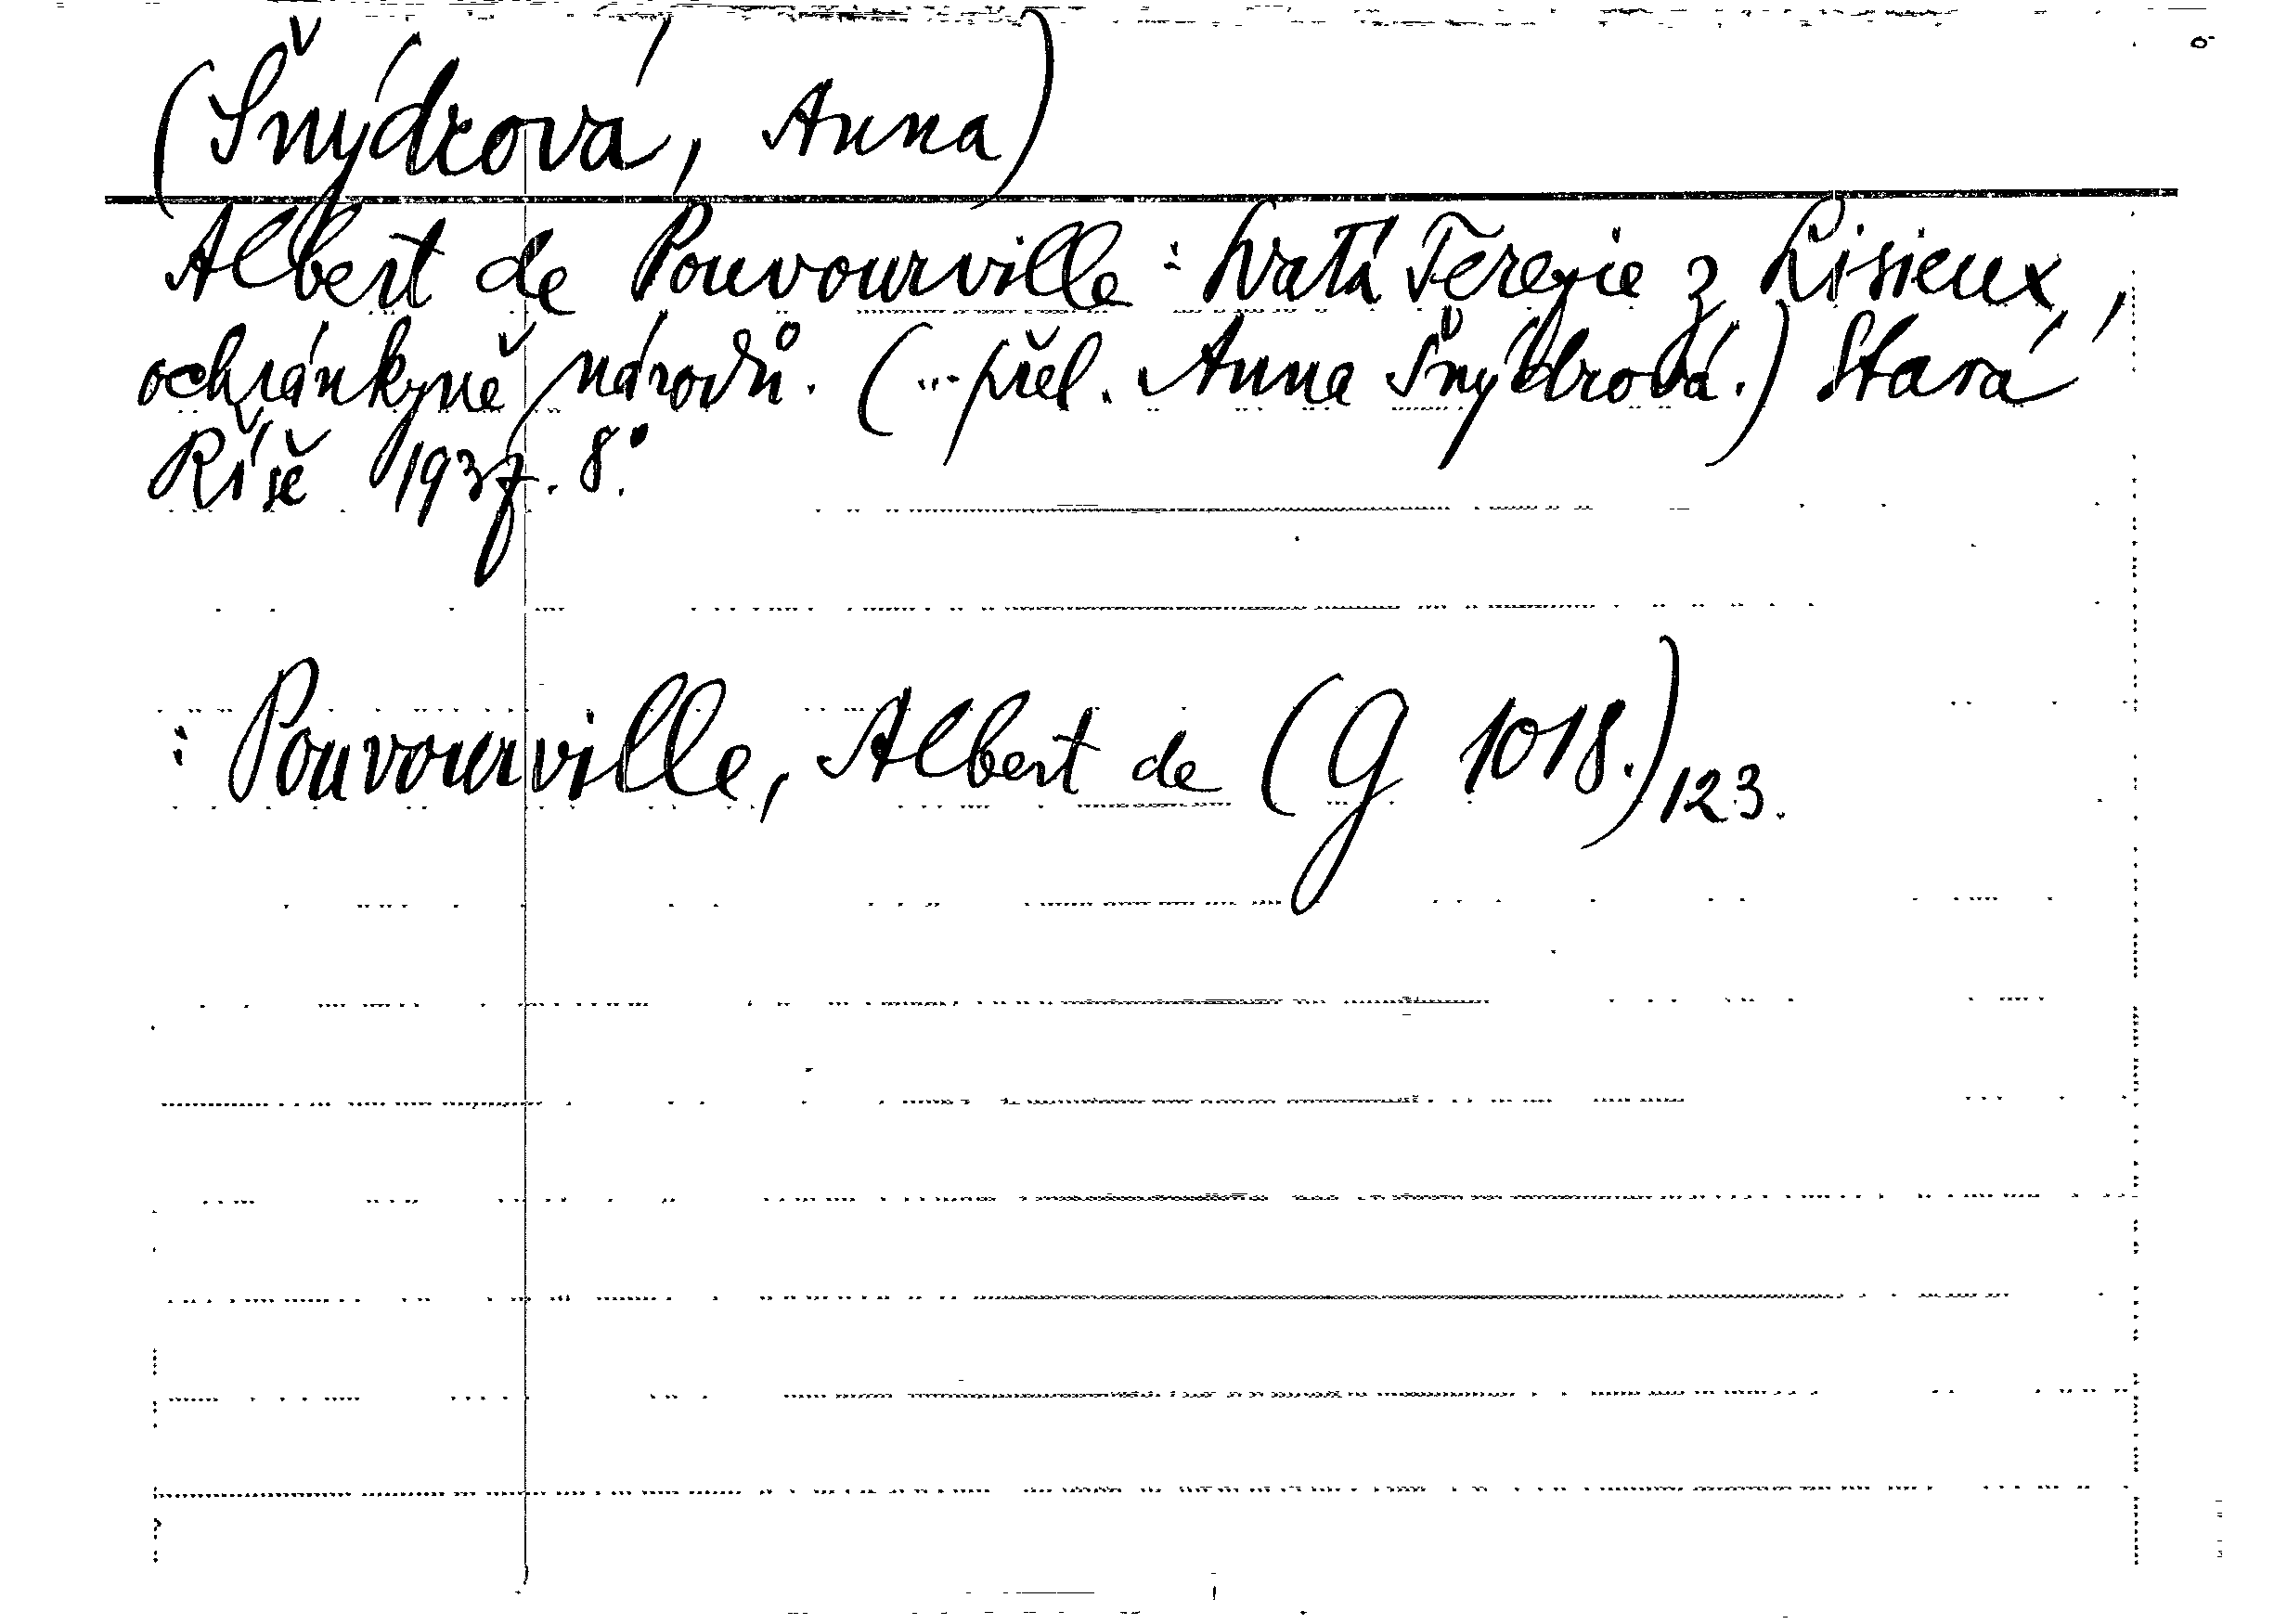 (Šnýdrová, Anna)
Albert de Pouvourville: Svatá Terezie z Lisieux,
ochránkyně národů. (...přel. Anna Šnýdrová.) Stará
Říše 1937. 8°.
: Pouvourville, Albert de (G 1018.) 123.